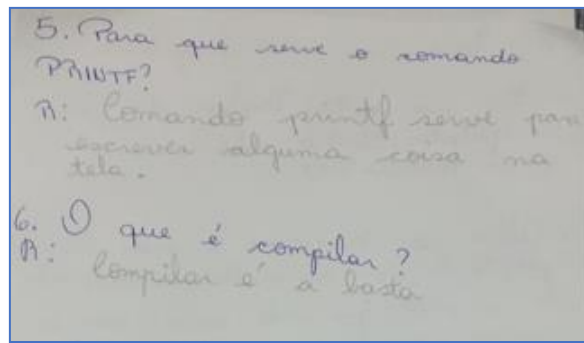 5. Para que serve o comando
PRINTF?
R: Comando printf serve para
escrever alguma coisa na
tela.
6. O que é compilar?
R: Compilar é a basta